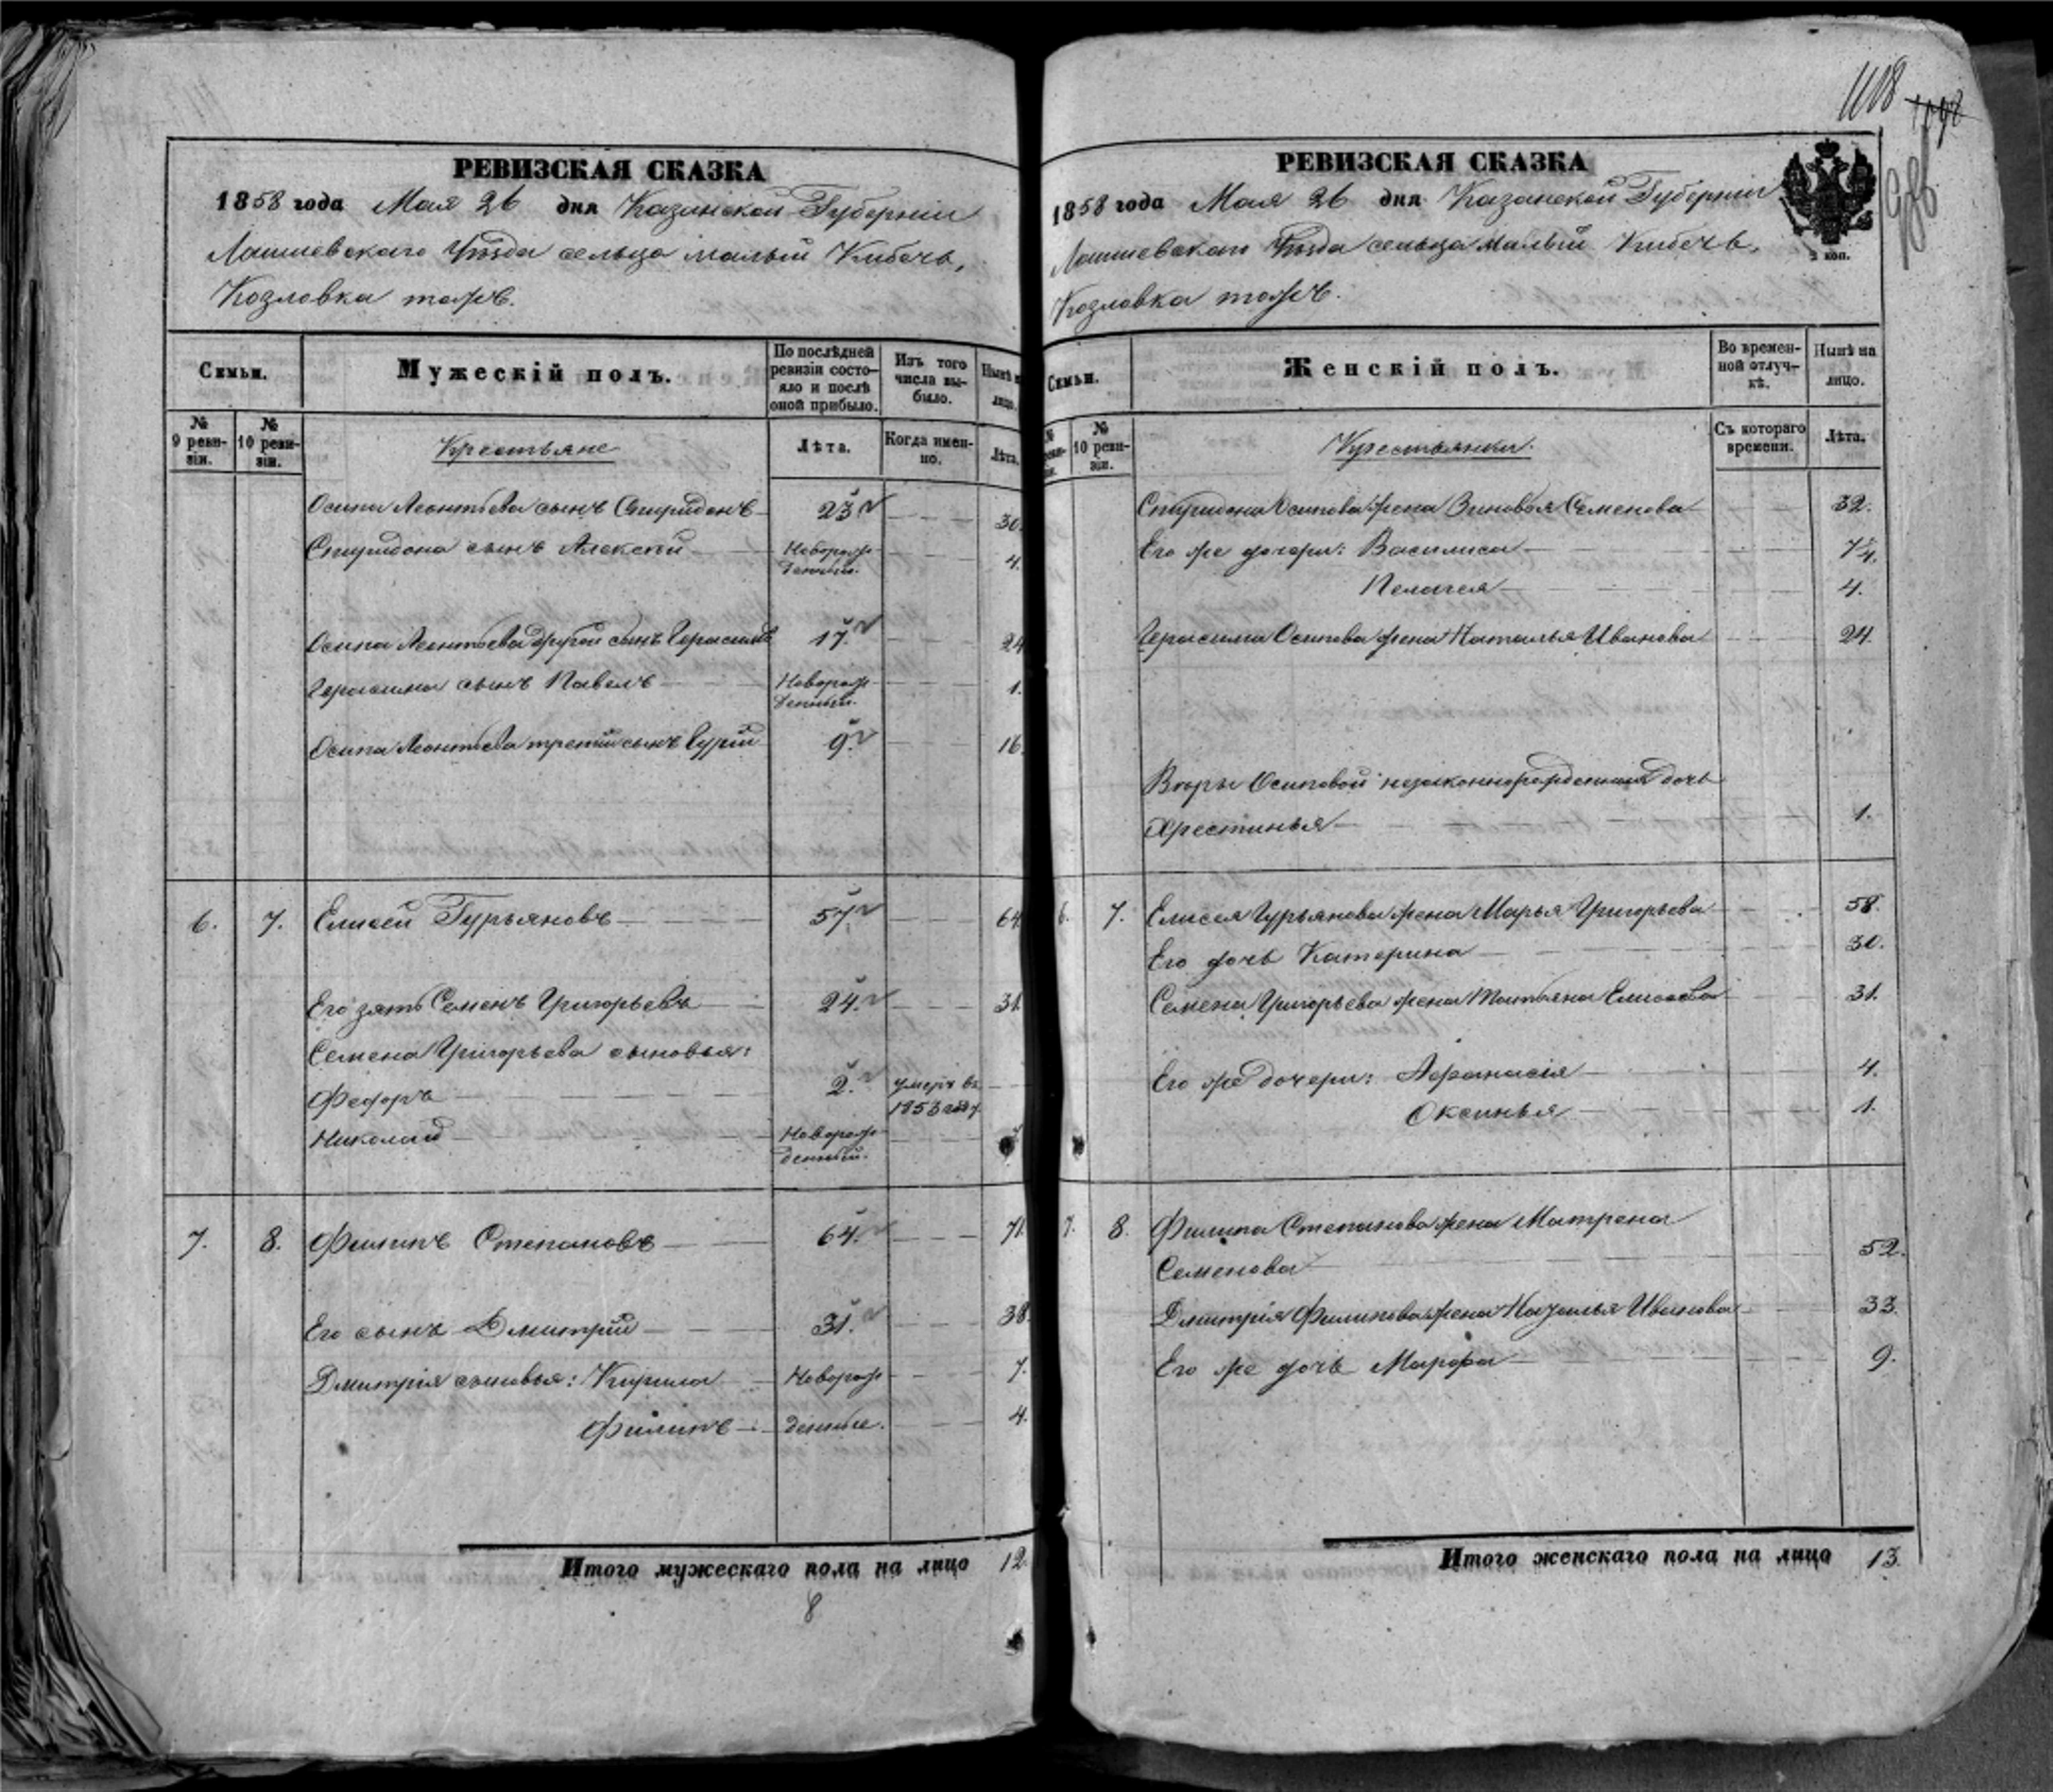 РЕВИЗСКАЯ СКАЗКА
1858 года Мая 26 дня Казанской Губерніи
Лаишевскаго Уѣзда сельца малый Кибечь,
Козловка тожъ.
Семьи.
Мужескій полъ.
По послѣдней ревизіи состояло и послѣ оной прибыло.
Изъ того числа выбыло.
Нынѣ на лицо.
№ 9 ревизіи.
№ 10 ревизіи.
Крестьяне
Лѣта.
Когда именно.
Лѣта.
Осипа Леонтьева сынъ Спиридонъ 23. 30.
Спиридона сынъ Алексѣй Новорожденный. 4.
Осипа Леонтьева другой сынъ Герасимъ 17. 24
Герасима сынъ Павелъ Новорожденный. 1.
Осипа Леонтьева третій сынъ Гурій 9. 16.
6. 7. Елисей Гурьяновъ 57 64.
Его зять Семенъ Григорьевъ 24. 31.
Семена Григорьева сыновья:
Федоръ 2. умеръ въ 1853 году.
Николай Новорожденный.
7. 8. Филипъ Степановъ 64. 71.
Его сынъ Дмитрій 31. 38.
Дмитрія сыновья: Кирила Новорож 7.
Филипъ денные. 4.
Итого мужескаго пола на лицо 12.
8
1108
РЕВИЗСКАЯ СКАЗКА
1858 года Мая 26 дня Казанской Губерніи
2 коп.
Лаишевскаго Уѣзда сельца малый Кибечь,
Козловка тожъ.
Семьи.
Женскій полъ.
Во временной отлучкѣ.
Нынѣ на лицо.
№ 10 ревизіи.
Крестьянки.
Съ котораго времени.
Лѣта.
Спиридона Осипова жена Зиновья Семенова 32.
Его же дочери: Василиса
Пелагея 4.
Герасима Осипова жена Наталья Иванова 24.
Осиповой незаконнорожденная дочь
Хрестинья 1.
6. 7. Елисея Гурьянова жена Марья Григорьева 58.
Его дочь Катерина 30.
Семена Григорьева жена Татьяна Елисеева 31.
Его же дочери: Афанасія 4.
Оксинья 1.
7. 8. Филипа Степанова жена Матрена
Семенова 52.
Дмитрія Филипова жена Наталья Иванова 33.
Его же дочь Марфа 9.
Итого женскаго пола на лицо 13.